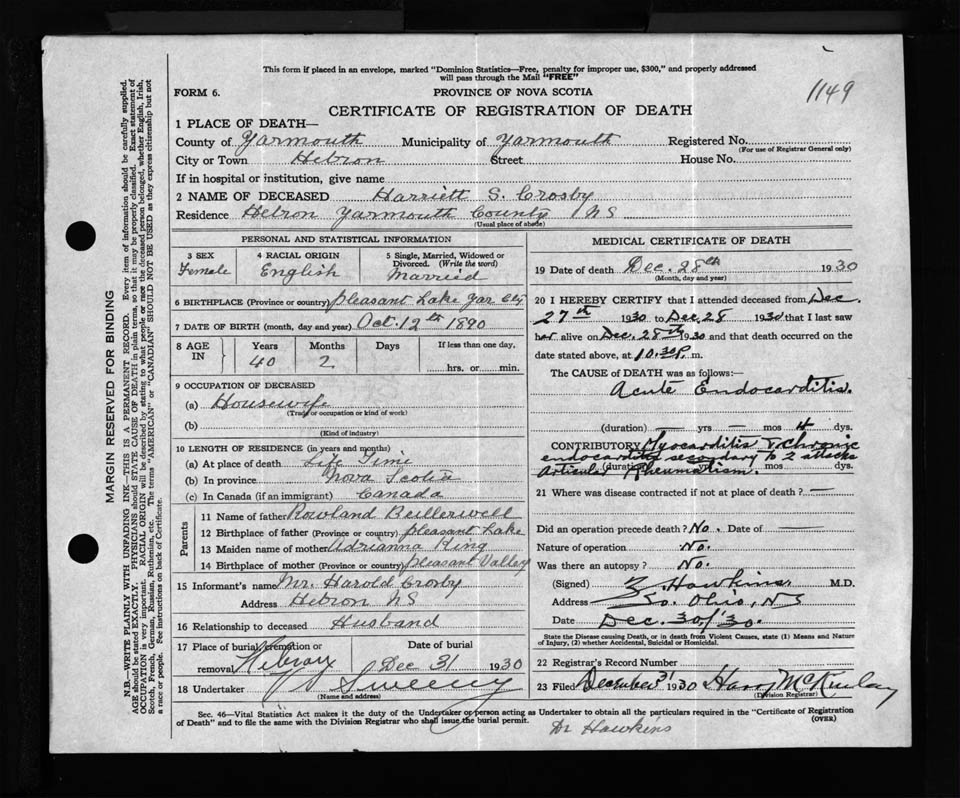 This form if placed in an envelope, marked "Dominion Statistics—Free, penalty for improper use, $300," and properly addressed
will pass through the Mail "FREE"
1149
FORM 6.
PROVINCE OF NOVA SCOTIA
CERTIFICATE OF REGISTRATION OF DEATH
1 PLACE OF DEATH—
County of Yarmouth Municipality of Yarmouth Registered No.
(For use of Registrar General only)
City or Town Hebron Street House No.
If in hospital or institution, give name
2 NAME OF DECEASED Harriett S. Crosby
Residence Hebron Yarmouth County NS
(Usual place of abode)
PERSONAL AND STATISTICAL INFORMATION
3 SEX
Female
4 RACIAL ORIGIN
English
5 Single, Married, Widowed or
Divorced. (Write the word)
Married
6 BIRTHPLACE (Province or country) Pleasant Lake Yar Cty
7 DATE OF BIRTH (month, day and year) Oct. 12th 1890
8 AGE IN
Years Months Days If less than one day,
40 2 hrs. or min.
9 OCCUPATION OF DECEASED
(a) Housewife
(Trade or occupation or kind of work)
(b)
(Kind of industry)
10 LENGTH OF RESIDENCE (in years and months)
(a) At place of death Life Time
(b) In province Nova Scotia
(c) In Canada (if an immigrant) Canada
Parents
11 Name of father Rowland
12 Birthplace of father (Province or country) Pleasant Lake
13 Maiden name of mother Adrianna King
14 Birthplace of mother (Province or country) Pleasant Valley
15 Informant's name Mr. Harold Crosby
Address Hebron NS
16 Relationship to deceased Husband
17 Place of burial, cremation or Date of burial
removal Dec 31 1930
18 Undertaker Sweeny
(Name and address)
MEDICAL CERTIFICATE OF DEATH
19 Date of death Dec. 28th 1930
(Month, day and year)
20 I HEREBY CERTIFY that I attended deceased from Dec.
27th 1930 to Dec. 28 1930 that I last saw
her alive on Dec. 28th 1930 and that death occurred on the
date stated above, at 10.30 P. m.
The CAUSE of DEATH was as follows:
Acute Endocarditis.
(duration) — yrs — mos 4 dys.
CONTRIBUTORY Myocarditis & Chronic
endocarditis secondary to 2 attacks
Articular Rheumatism.
(duration) mos dys.
21 Where was disease contracted if not at place of death? —
Did an operation precede death? No. Date of —
Nature of operation No.
Was there an autopsy? No.
(Signed) Z. Hawkins M.D.
Address So. Ohio, NS
Date Dec. 30/'30.
State the Disease causing Death, or in death from Violent Causes, state (1) Means and Nature
of Injury, (2) whether Accidental, Suicidal or Homicidal.
22 Registrar's Record Number
23 Filed December 31 1930 Harry McKinlay
(Division Registrar)
Sec. 46—Vital Statistics Act makes it the duty of the Undertaker or person acting as Undertaker to obtain all the particulars required in the "Certificate of Registration
of Death" and to file the same with the Division Registrar who shall issue the burial permit.
(OVER)
Dr Hawkins
MARGIN RESERVED FOR BINDING
N.B.—WRITE PLAINLY WITH UNFADING INK—THIS IS A PERMANENT RECORD. Every item of information should be carefully supplied.
AGE should be stated EXACTLY. PHYSICIANS should STATE CAUSE OF DEATH in plain terms, so that it may be properly classified. Exact statement of
OCCUPATION is very important. RACIAL ORIGIN will be described by stating to what people or race the deceased person belonged, whether English, Irish,
Scotch, French, German, Russian, Ruthenian, etc. The terms "AMERICAN" or "CANADIAN" SHOULD NOT BE USED as they express citizenship but not
a race or people. See instructions on back of Certificate.